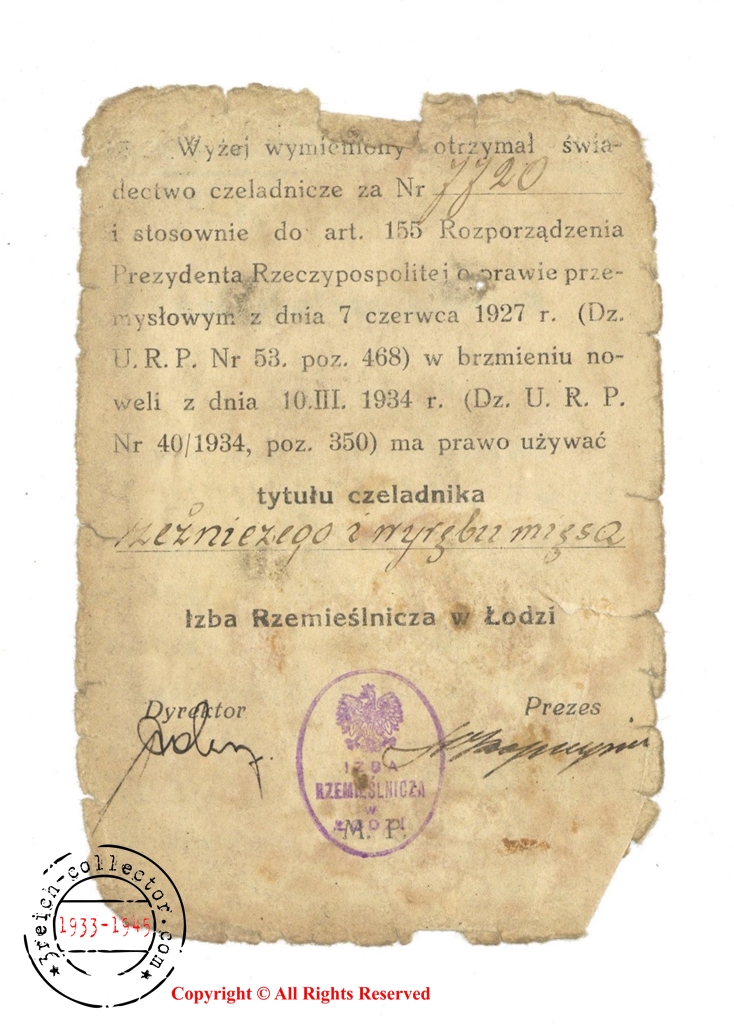 Wyżej wymieniony otrzymał świa-
dectwo czeladnicze za Nr 7720
i stosownie do art. 155 Rozporządzenia
Prezydenta Rzeczypospolitej o prawie prze-
mysłowym z dnia 7 czerwca 1927 r. (Dz.
U. R. P. Nr 53. poz. 468) w brzmieniu no-
weli z dnia 10.III. 1934 r. (Dz. U. R. P.
Nr 40/1934, poz. 350) ma prawo używać
tytułu czeladnika
rzeźniczego i wyrębu mięsa
Izba Rzemieślnicza w Łodzi
Dyrektor Prezes
IZBA
RZEMIEŚLNICZA
W
ŁODZI
M. P.
3reich-collector.com
1933-1945
Copyright © All Rights Reserved